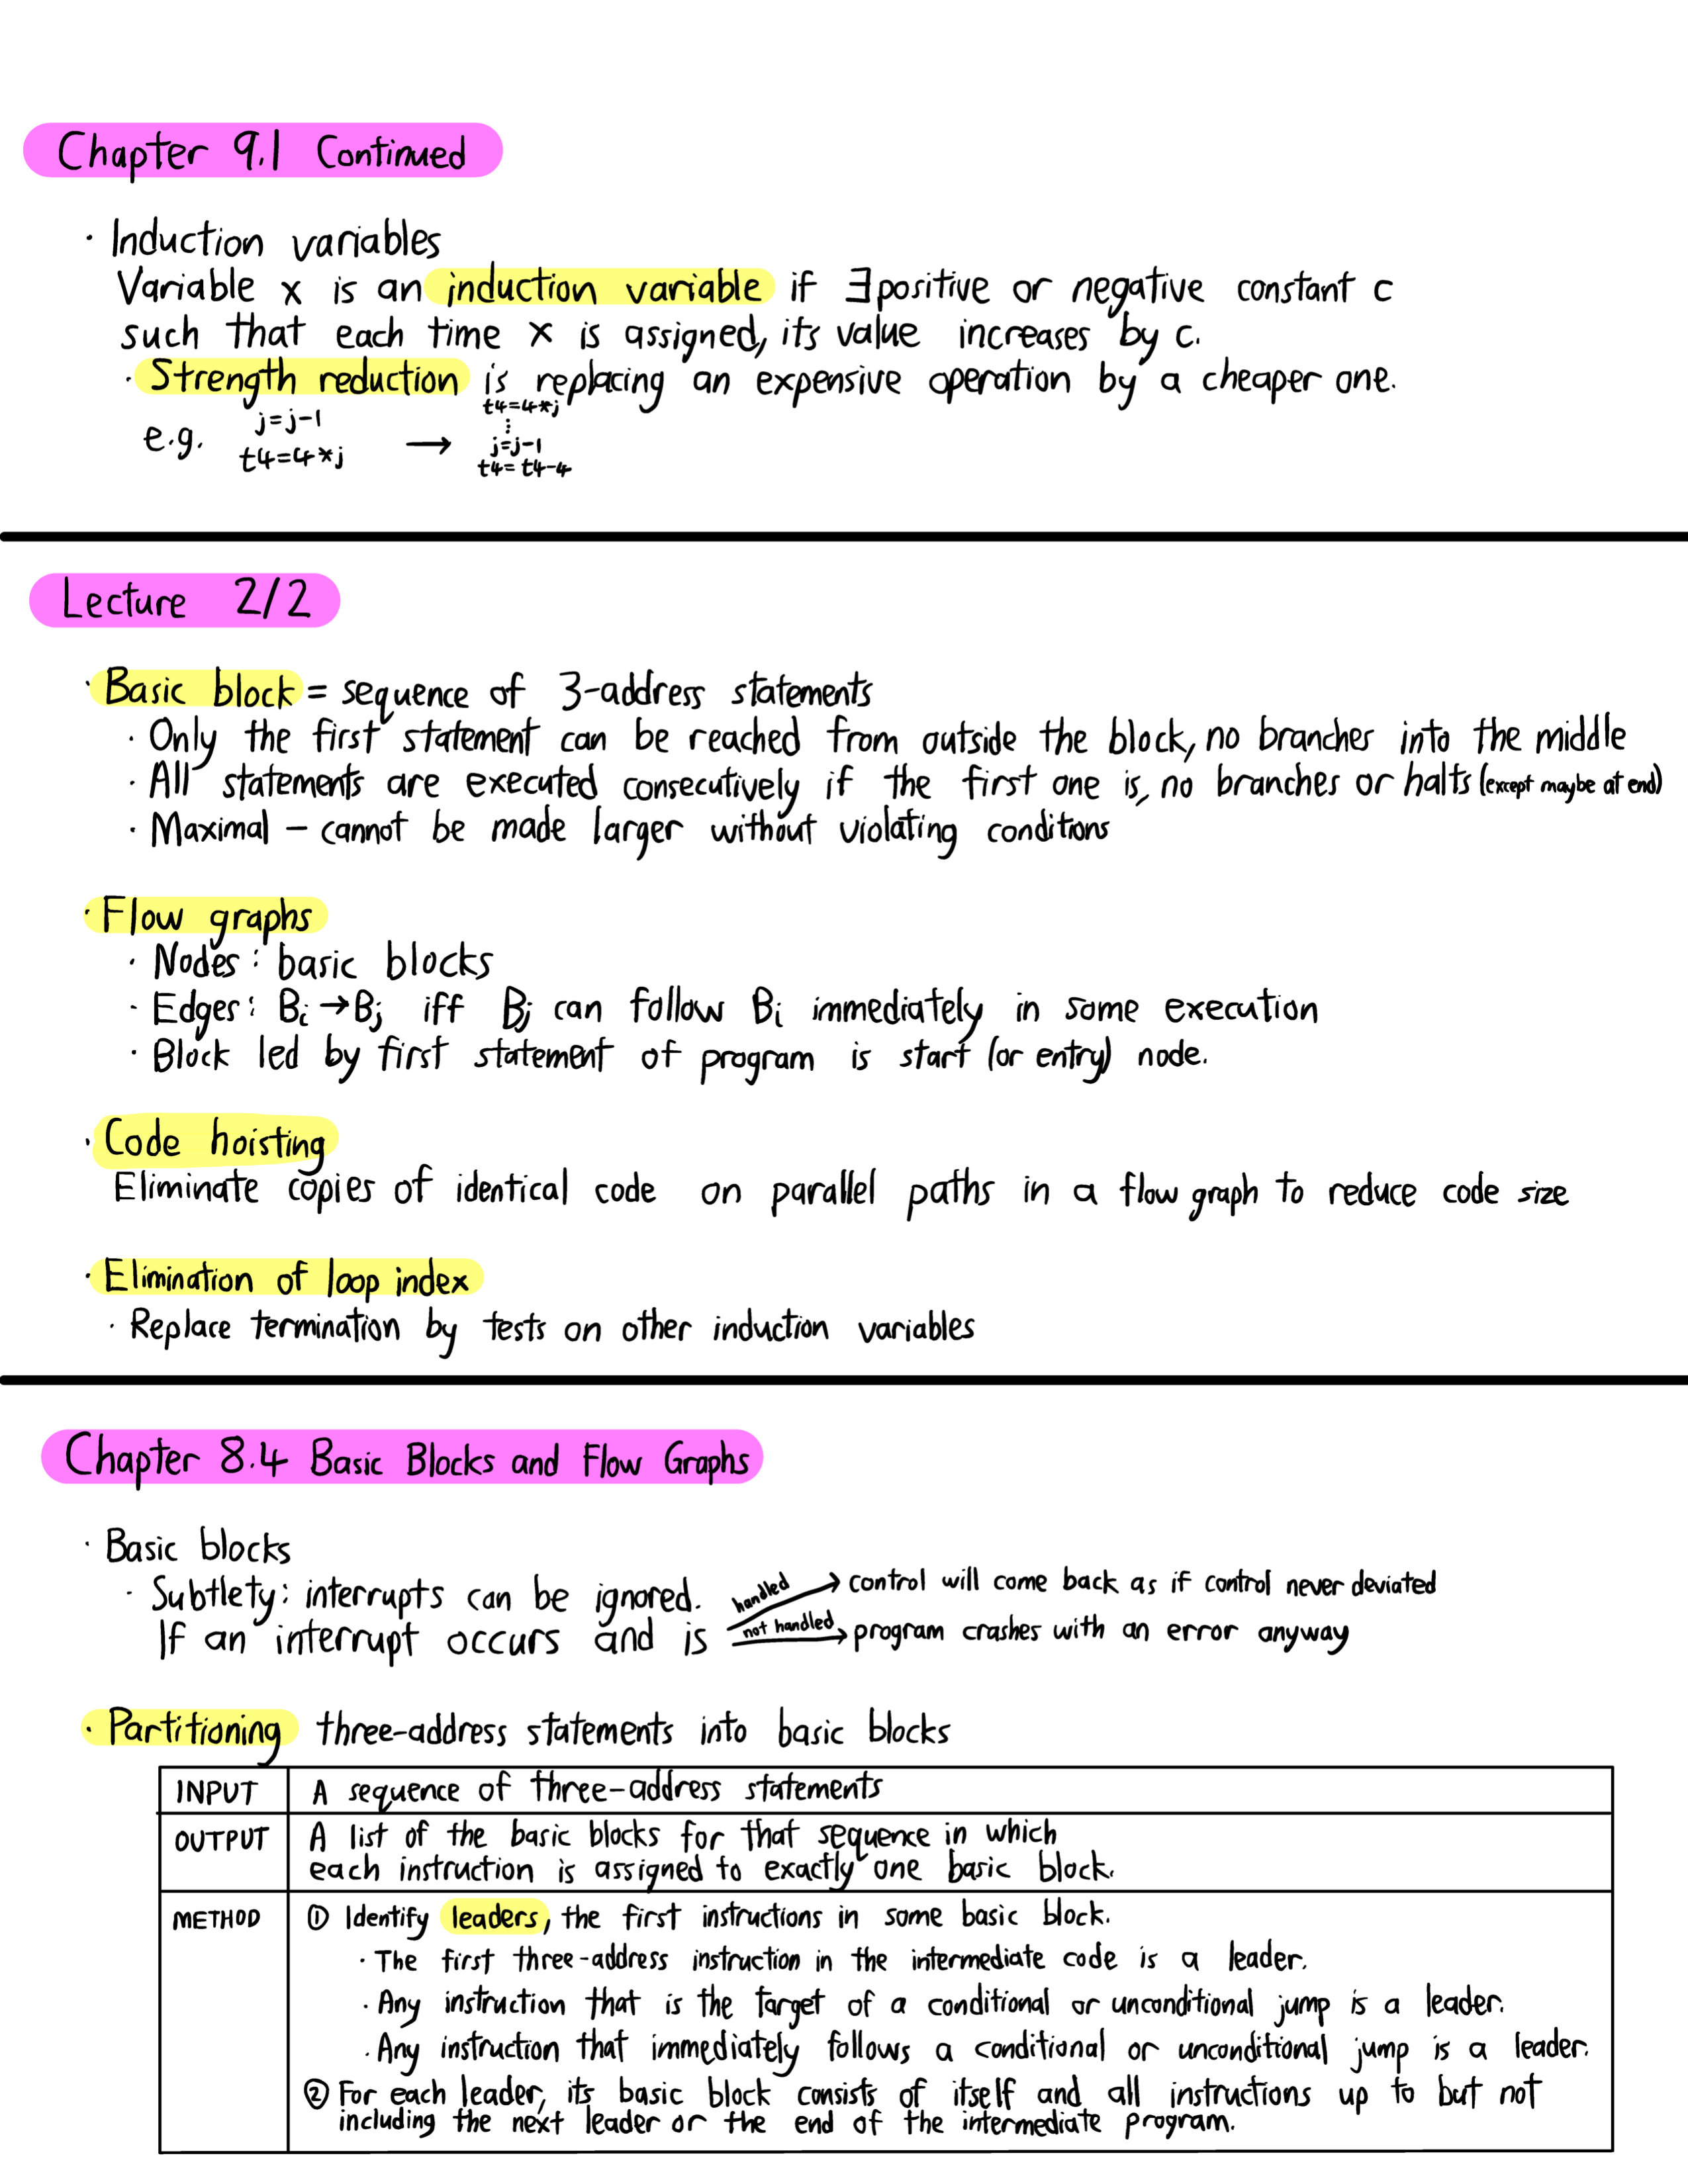 Chapter 9.1 Continued
· Induction variables
Variable x is an induction variable if ∃ positive or negative constant c
such that each time x is assigned, its value increases by c.
· Strength reduction is replacing an expensive operation by a cheaper one.
e.g. j=j-1 t4=4*j → t4=4*j ⋮ j=j-1 t4=t4-4
Lecture 2/2
· Basic block = sequence of 3-address statements
· Only the first statement can be reached from outside the block, no branches into the middle
· All statements are executed consecutively if the first one is, no branches or halts (except maybe at end)
· Maximal – cannot be made larger without violating conditions
· Flow graphs
· Nodes: basic blocks
· Edges: Bi → Bj iff Bj can follow Bi immediately in some execution
· Block led by first statement of program is start (or entry) node.
· Code hoisting
Eliminate copies of identical code on parallel paths in a flow graph to reduce code size
· Elimination of loop index
· Replace termination by tests on other induction variables
Chapter 8.4 Basic Blocks and Flow Graphs
· Basic blocks
· Subtlety: interrupts can be ignored.
If an interrupt occurs and is
handled → control will come back as if control never deviated
not handled → program crashes with an error anyway
· Partitioning three-address statements into basic blocks
INPUT A sequence of three-address statements
OUTPUT A list of the basic blocks for that sequence in which
each instruction is assigned to exactly one basic block.
METHOD ① Identify leaders, the first instructions in some basic block.
· The first three-address instruction in the intermediate code is a leader.
· Any instruction that is the target of a conditional or unconditional jump is a leader.
· Any instruction that immediately follows a conditional or unconditional jump is a leader.
② For each leader, its basic block consists of itself and all instructions up to but not
including the next leader or the end of the intermediate program.